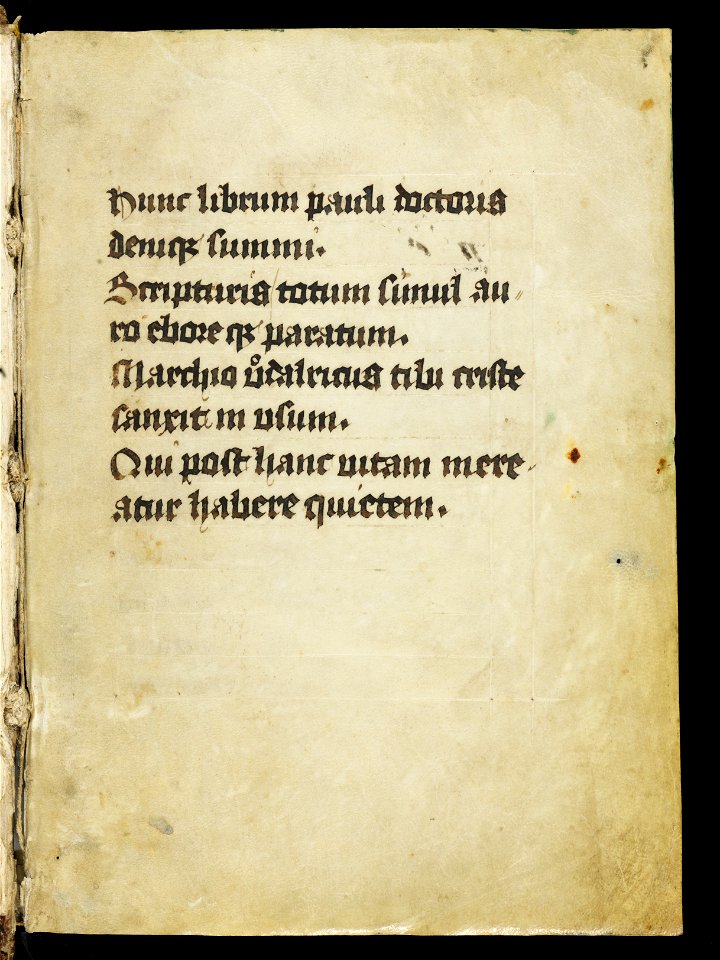 Hunc librum pauli doctoris
deniqꝫ summi.
Scripturis totum simul au-
ro eboreqꝫ paratum.
Marchio uͦdalricus tibi criste
sanxit in vsum.
Qui post hanc uitam mere-
atur habere quietem.